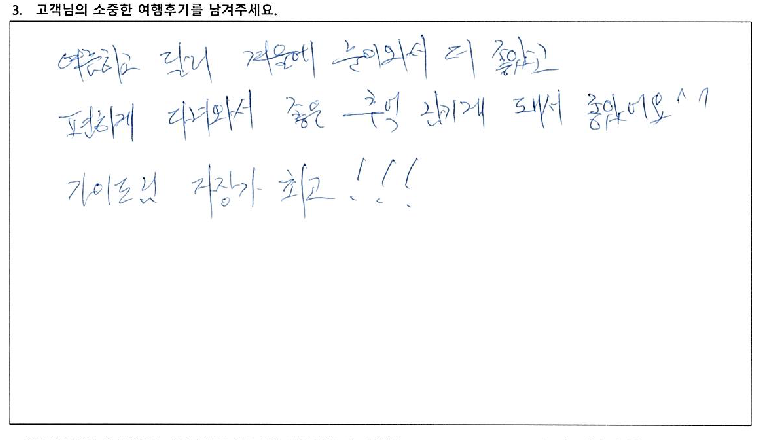 3. 고객님의 소중한 여행후기를 남겨주세요.
여름하고 달리 겨울에 눈이와서 더 좋았고
편하게 다녀와서 좋은 추억 남기게 돼서 좋았어요^^
가이드님 자장가 최고!!!